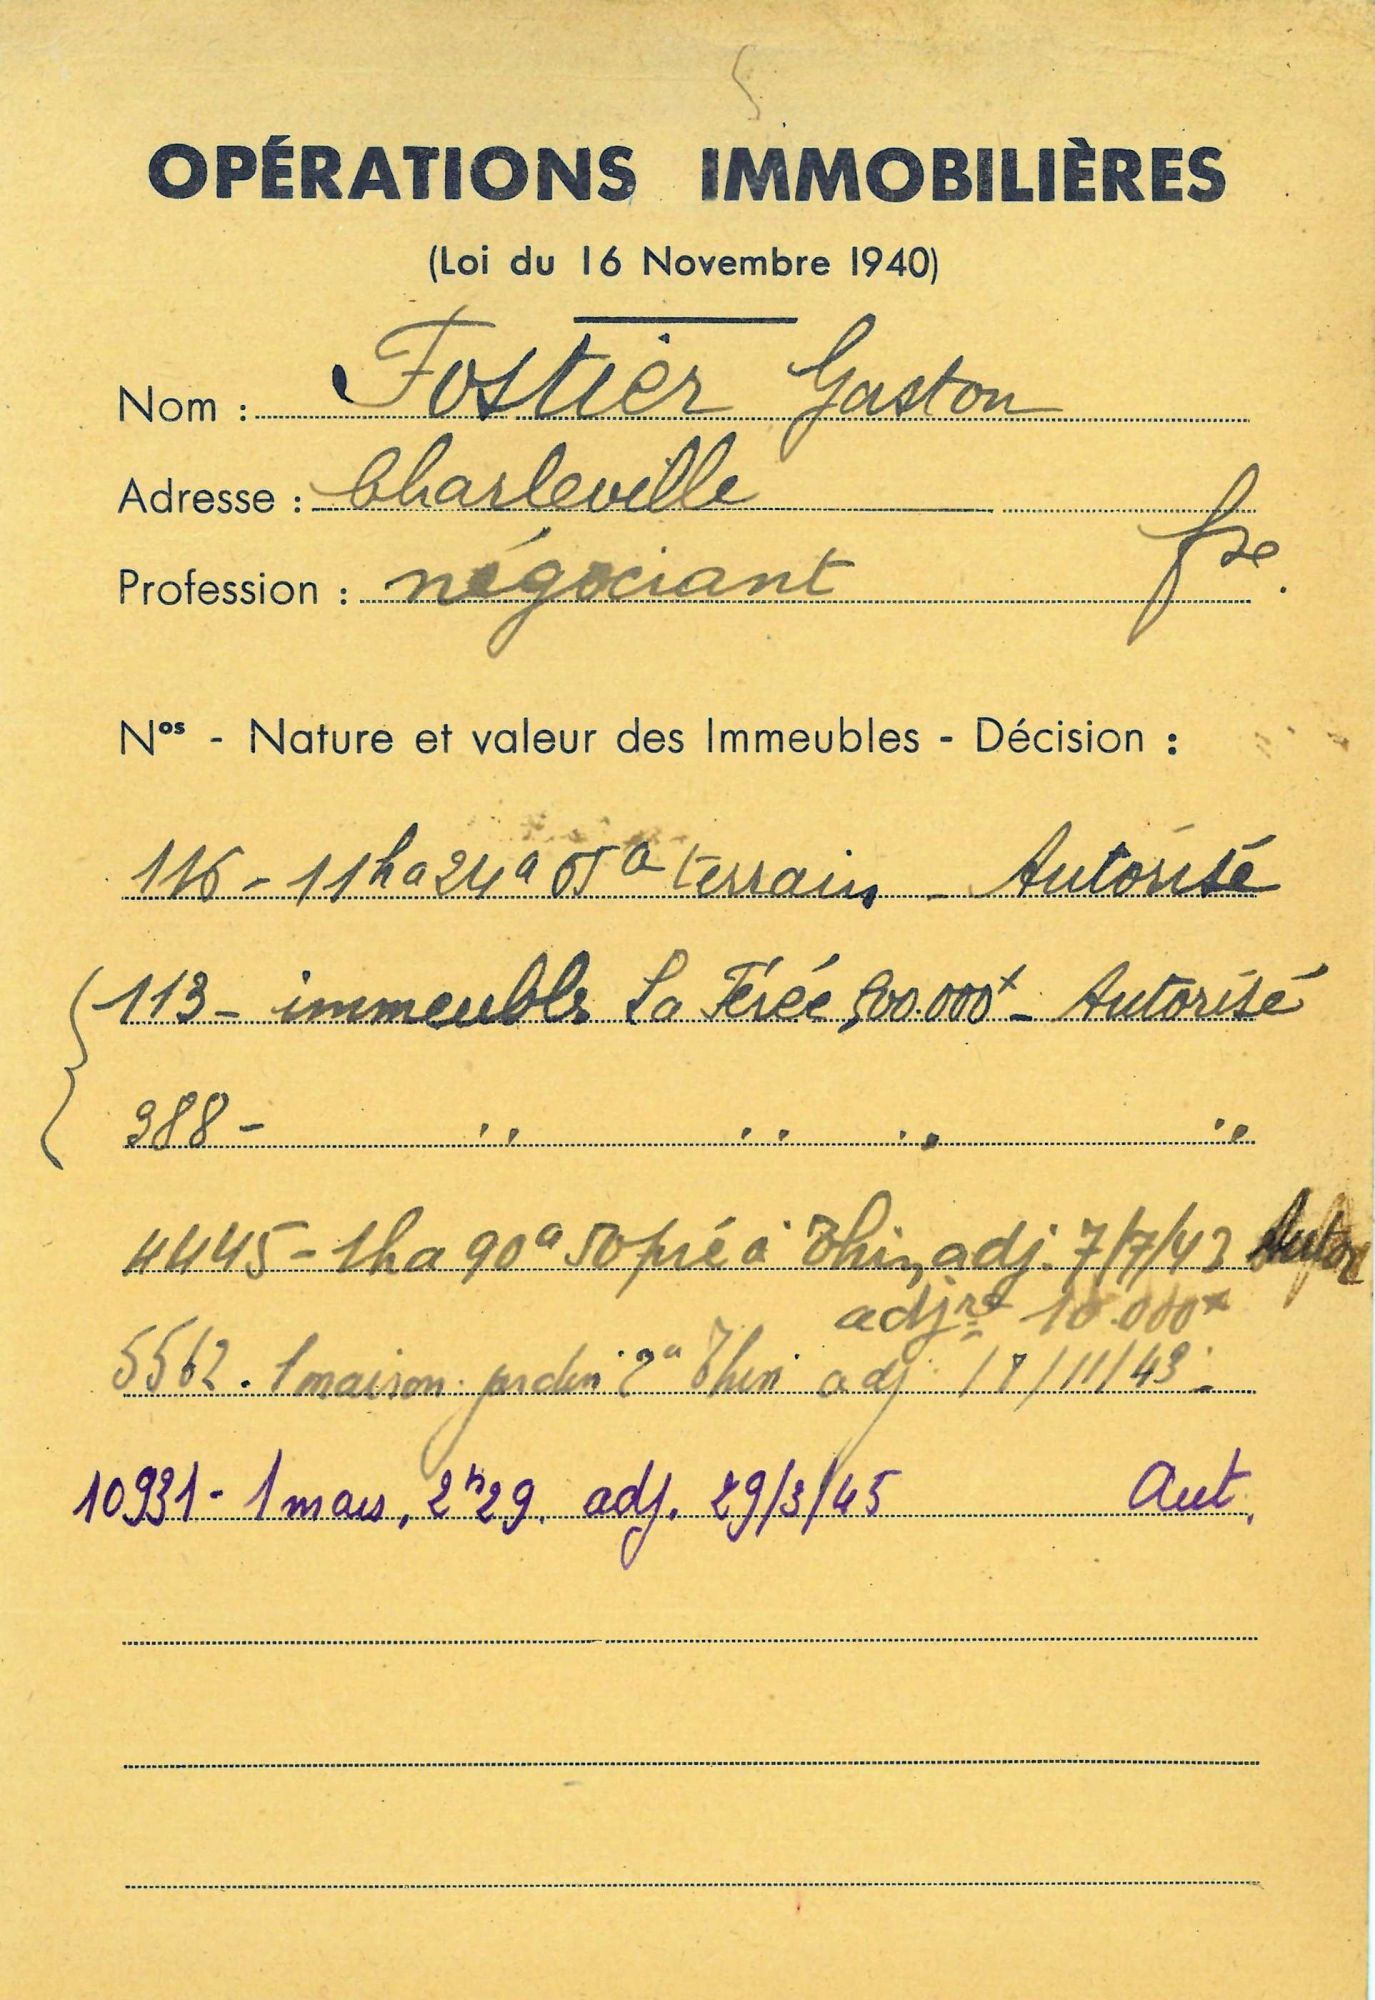 OPÉRATIONS IMMOBILIÈRES
(Loi du 16 Novembre 1940)
Nom : Fostier Gaston
Adresse : Charleville
Profession : négociant fse.
Nos - Nature et valeur des Immeubles - Décision :
116 - 11ha 24a 05a terrain - Autorisé
113 - immeuble La Férée, 500.000f - Autorisé
388 - " " " "
4445 - 1ha 90a 50 pré à Thin, adj. 7/7/43 Autor
adjre 10.000f
5562. 1 maison jardin 2a Thin adj. 17/11/43 -
10931 - 1 mais, 2h29. adj. 29/3/45 Aut.